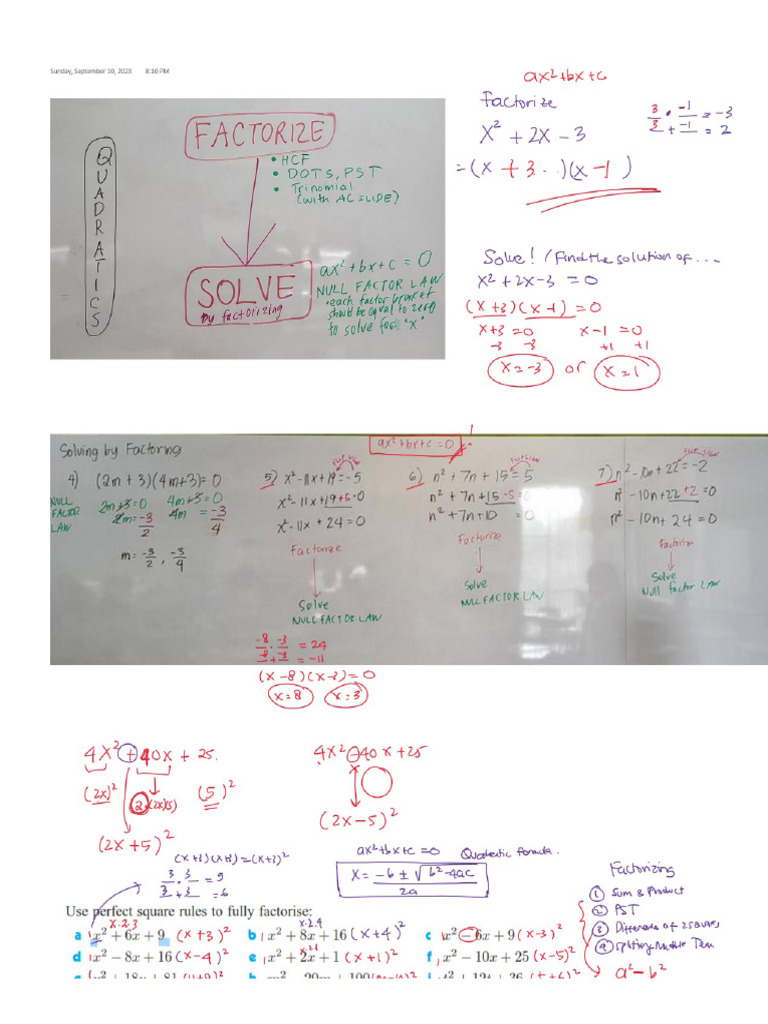 Sunday, September 10, 2023 8:10 PM
ax²+bx+c
Factorize
x² + 2x − 3
= (x + 3 )(x − 1)
3/3 · −1/−1 = −3
+ = 2
QUADRATICS
FACTORIZE
• HCF
• DOTS, PST
• Trinomial
(with AC SLIDE)
SOLVE
by factorizing
ax² + bx + c = 0
NULL FACTOR LAW
• each factor bracket
should be equal to zero
to solve for "x"
Solve! / Find the solution of ...
x² + 2x − 3 = 0
(x + 3)(x − 1) = 0
x + 3 = 0 x − 1 = 0
−3 −3 +1 +1
x = −3 or x = 1
Solving by Factoring
ax²+bx+c=0
4) (2m + 3)(4m + 3) = 0
NULL FACTOR LAW
2m + 3 = 0 4m + 3 = 0
2m = −3/2 4m = −3/4
m = −3/2 , −3/4
5) x² − 11x + 19 = −5
x² − 11x + 19 + 5 = 0
x² − 11x + 24 = 0
Factorize
Solve
NULL FACTOR LAW
−8/−8 · −3/−3 = 24
+ = −11
(x − 8)(x − 3) = 0
x = 8 x = 3
6) n² + 7n + 15 = 5
n² + 7n + 15 − 5 = 0
n² + 7n + 10 = 0
Factorize
Solve
NULL FACTOR LAW
7) n² − 10n + 22 = −2
n² − 10n + 22 + 2 = 0
n² − 10n + 24 = 0
Factorize
Solve
Null factor Law
4x² + 40x + 25
(2x)² 2(2x)(5) (5)²
(2x + 5)²
4x² − 40x + 25
(2x − 5)²
(x+3)(x+3) = (x+3)²
3/3 · 3/3 = 9
+ = 6
ax² + bx + c = 0 Quadratic Formula
x = −b ± √b² − 4ac / 2a
Factorizing
① Sum & Product
② PST
③ Difference of 2 squares
④ Splitting Middle Term
a² − b²
Use perfect square rules to fully factorise:
x·2·3 x·2·4
a x² + 6x + 9 (x + 3)² b x² + 8x + 16 (x + 4)² c x² − 6x + 9 (x − 3)²
d x² − 8x + 16 (x − 4)² e x² + 2x + 1 (x + 1)² f x² − 10x + 25 (x − 5)²